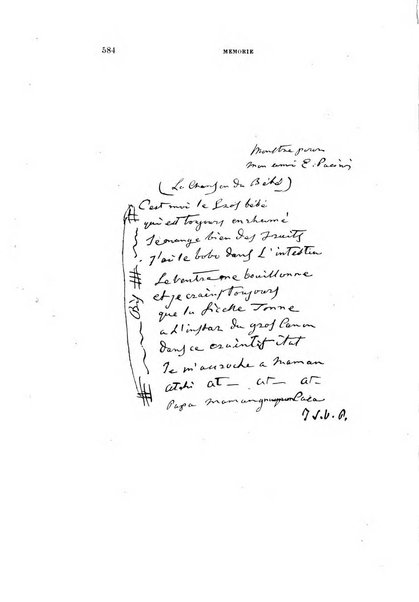 584
MEMORIE
Monstre pour
mon ami E. Pacini
(La Chanson du Bébé)
C'est moi le Gros bébé
qui est toujours enrhumé
Je mange bien des fruits
J'ai le bobo dans L'intestin
Bis
Le ventre me bouillonne
et je crains toujours
que la Sicke Tonne
a L'instar du gros Canon
dans ce crainti État
Je m'accroche a Maman
atchi at_ at_ at_
Papa Maman Caca
T S.V.P.